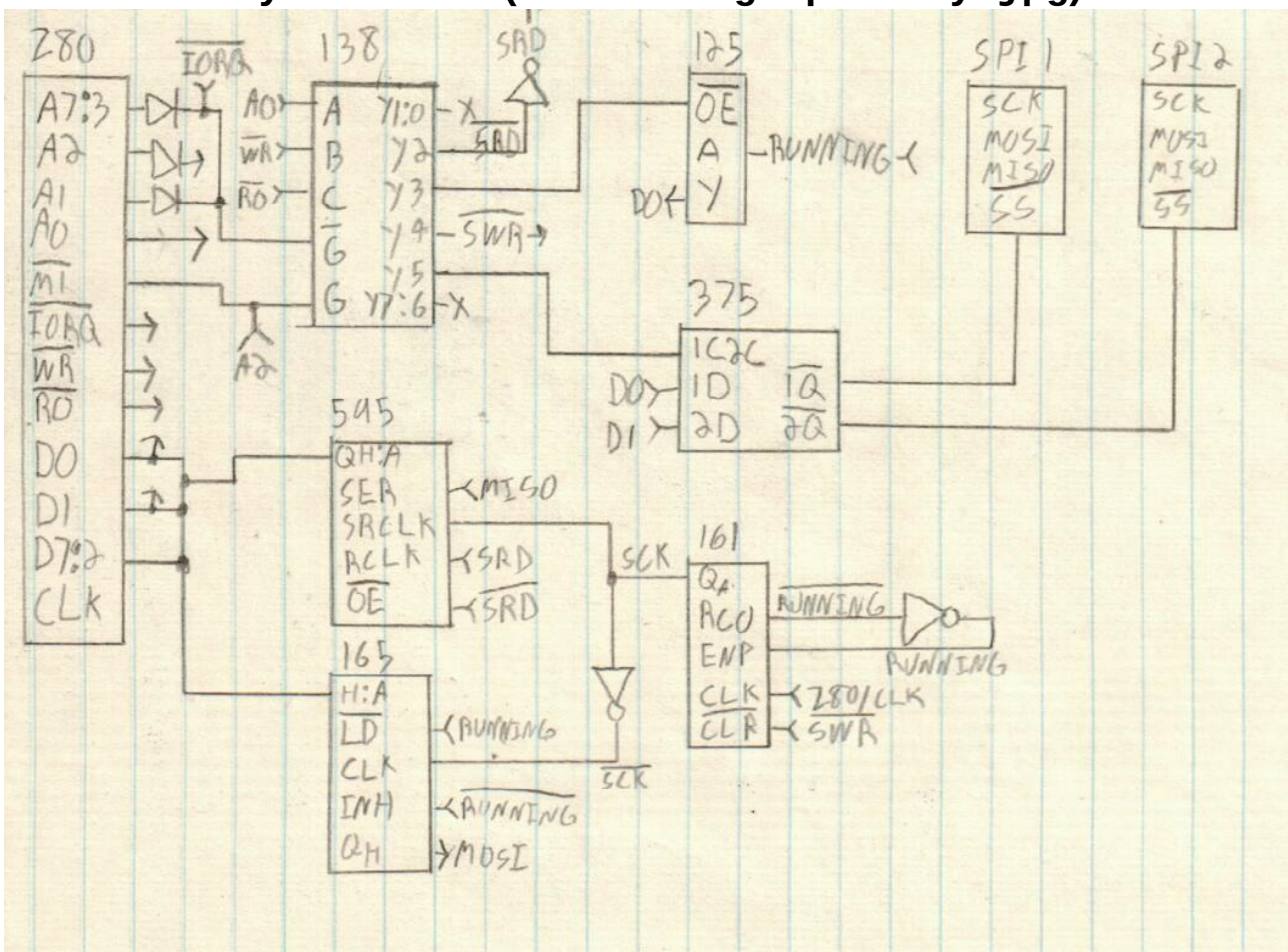 Z80
A7:3
A2
A1
A0
M1
IORQ
WR
RD
D0
D1
D7:2
CLK
IORQ
138
A0
WR
RD
A
B
C
G
G
Y1:0
Y2
Y3
Y4
Y5
Y7:6
X
X
A2
SRD
SRD
SWR
125
OE
A
Y
RUNNING
D0
SPI 1
SCK
MOSI
MISO
SS
SPI 2
SCK
MOSI
MISO
SS
375
1C2C
1D
2D
1Q
2Q
D0
D1
595
QH:A
SER
SRCLK
RCLK
OE
MISO
SRD
SRD
SCK
161
QA
RCO
ENP
CLK
CLR
RUNNING
RUNNING
Z80/CLK
SWR
165
H:A
LD
CLK
INH
QH
RUNNING
SCK
RUNNING
MOSI